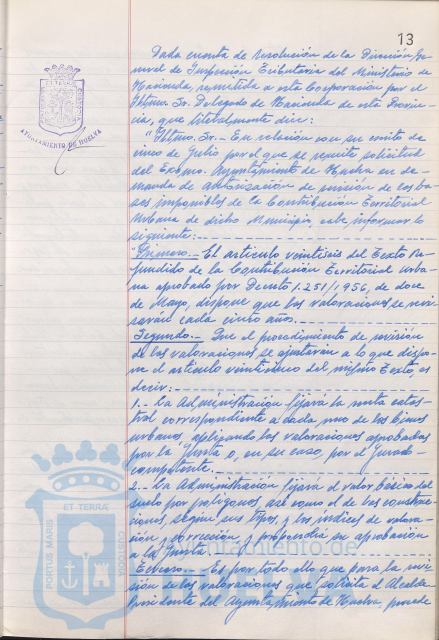 13
Dada cuenta de resolución de la Dirección Ge-
neral de Inspección Tributaria del Ministerio de
Hacienda, remitida a esta Corporación por el
Iltmo. Sr. Delegado de Hacienda de esta Provin-
cia, que literalmente dice:
"Iltmo. Sr.- En relación con su escrito de
cinco de Julio por el que se remite solicitud
del Excmo. Ayuntamiento de Huelva en de-
manda de autorización de revisión de las ba-
ses imponibles de la Contribución Territorial
Urbana de dicho Municipio, cabe informar lo
siguiente:
Primero.- El artículo veintiseis del Texto Re-
fundido de la Contribución Territorial Urba-
na aprobado por Decreto 1.251/1956, de doce
de Mayo, dispone que las valoraciones se revi-
sarán cada cinco años.
Segundo.- Que el procedimiento de revisión
de las valoraciones se ajustarán a lo que dispo-
ne el artículo veinticinco del mismo Texto, es
decir:
1.- La Administración fijará la renta catas-
tral correspondiente a cada uno de los bienes
urbanos, aplicando las valoraciones aprobadas
por la Junta o, en su caso, por el Jurado
competente.
2.- La Administración fijará el valor básico del
suelo por polígonos, así como el de las construc-
ciones, según sus tipos, y los índices de valora-
ción y corrección, y propondrá su aprobación
a la Junta.
Tercero.- Es por todo ello que para la revi-
sión de las valoraciones que solicita el Alcalde
Presidente del Ayuntamiento de Huelva, puede
AYUNTAMIENTO DE HUELVA
PORTUS MARIS
ET TERRÆ
CUSTODIA
Ayuntamiento de
HUELVA